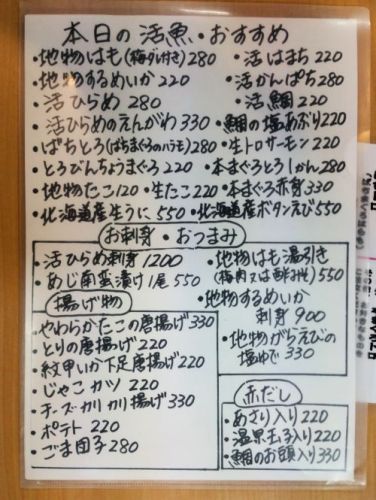 本日の活魚・おすすめ
・地物はも(梅ダレ付き)280 ・活はまち220
・地物するめいか220 ・活かんぱち280
・活ひらめ280 ・活鯛220
・活ひらめのえんがわ330 ・鯛の塩あぶり220
・ばちとろ(ばちまぐろのハラモ)280 ・生トロサーモン220
・とろびんちょうまぐろ220 ・本まぐろとろ1かん280
・地物たこ120 ・生たこ220 ・本まぐろ赤身330
・北海道産生うに550 ・北海道産ボタンえび550
お刺身・おつまみ
・活ひらめ刺身1200
・あじ南蛮漬け1尾550
・地物はも湯引き
(梅肉又は酢みそ)550
・地物するめいか
刺身900
・地物がらえびの
塩ゆで330
揚げ物
・やわらかたこの唐揚げ330
・とりの唐揚げ220
・紋甲いか下足唐揚げ220
・じゃこカツ220
・チーズカリカリ揚げ330
・ポテト220
・ごま団子280
赤だし
・あさり入り220
・温泉玉子入り220
・鯛のお頭入り330